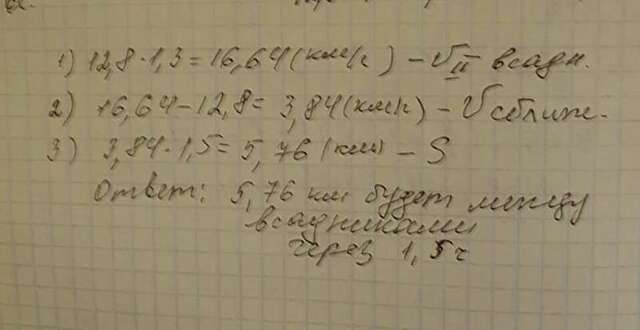 1) 12,8 · 1,3 = 16,64 (км/ч) – V II всадн.
2) 16,64 – 12,8 = 3,84 (км/ч) – V сближ.
3) 3,84 · 1,5 = 5,76 (км) – S
Ответ: 5,76 км будет между
всадниками
через 1,5 ч